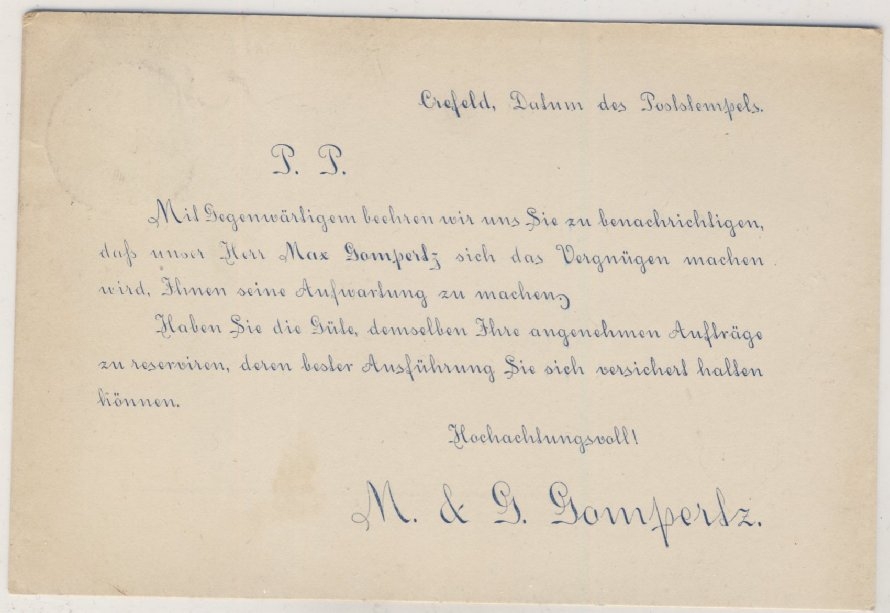 Crefeld, Datum des Poststempels.
P. P.
Mit Gegenwärtigem beehren wir uns Sie zu benachrichtigen,
daß unser Herr Max Gompertz sich das Vergnügen machen
wird, Ihnen seine Aufwartung zu machen,
Haben Sie die Güte, demselben Ihre angenehmen Aufträge
zu reserviren, deren bester Ausführung Sie sich versichert halten
können.
Hochachtungsvoll!
M. & G. Gompertz.